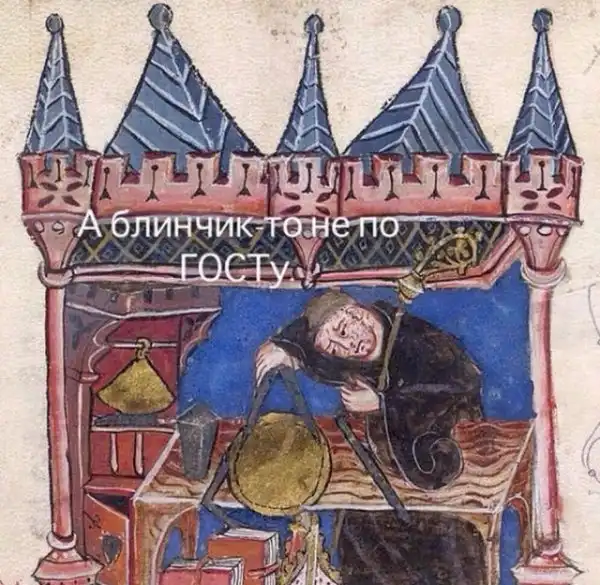 А блинчик-то не по
ГОСТу...